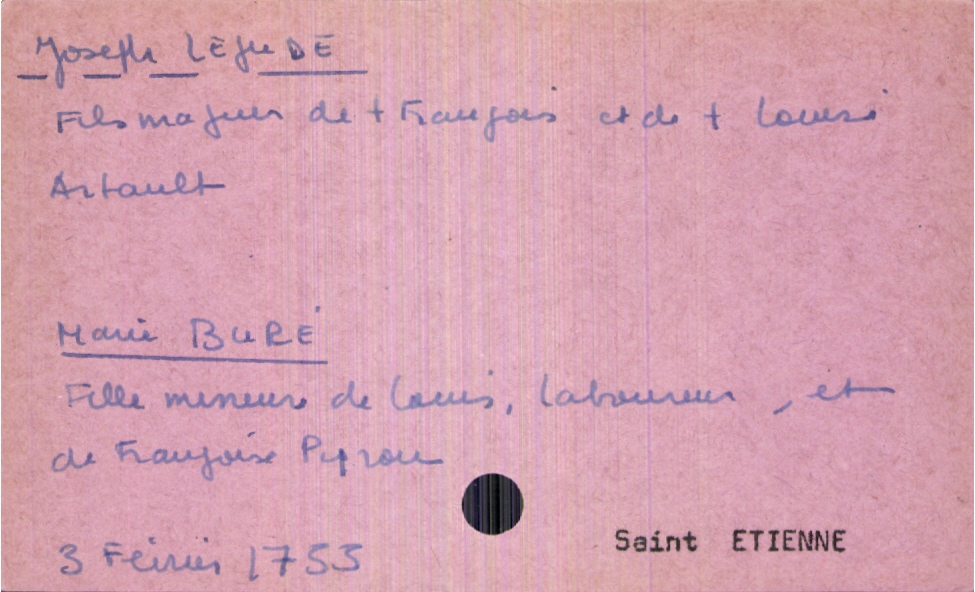 Joseph LEJUDE
Fils majeur de + François et de + Louise
Artault
Marie BURÉ
Fille mineure de Louis, laboureur, et
de Françoise
3 Février 1755
Saint ETIENNE